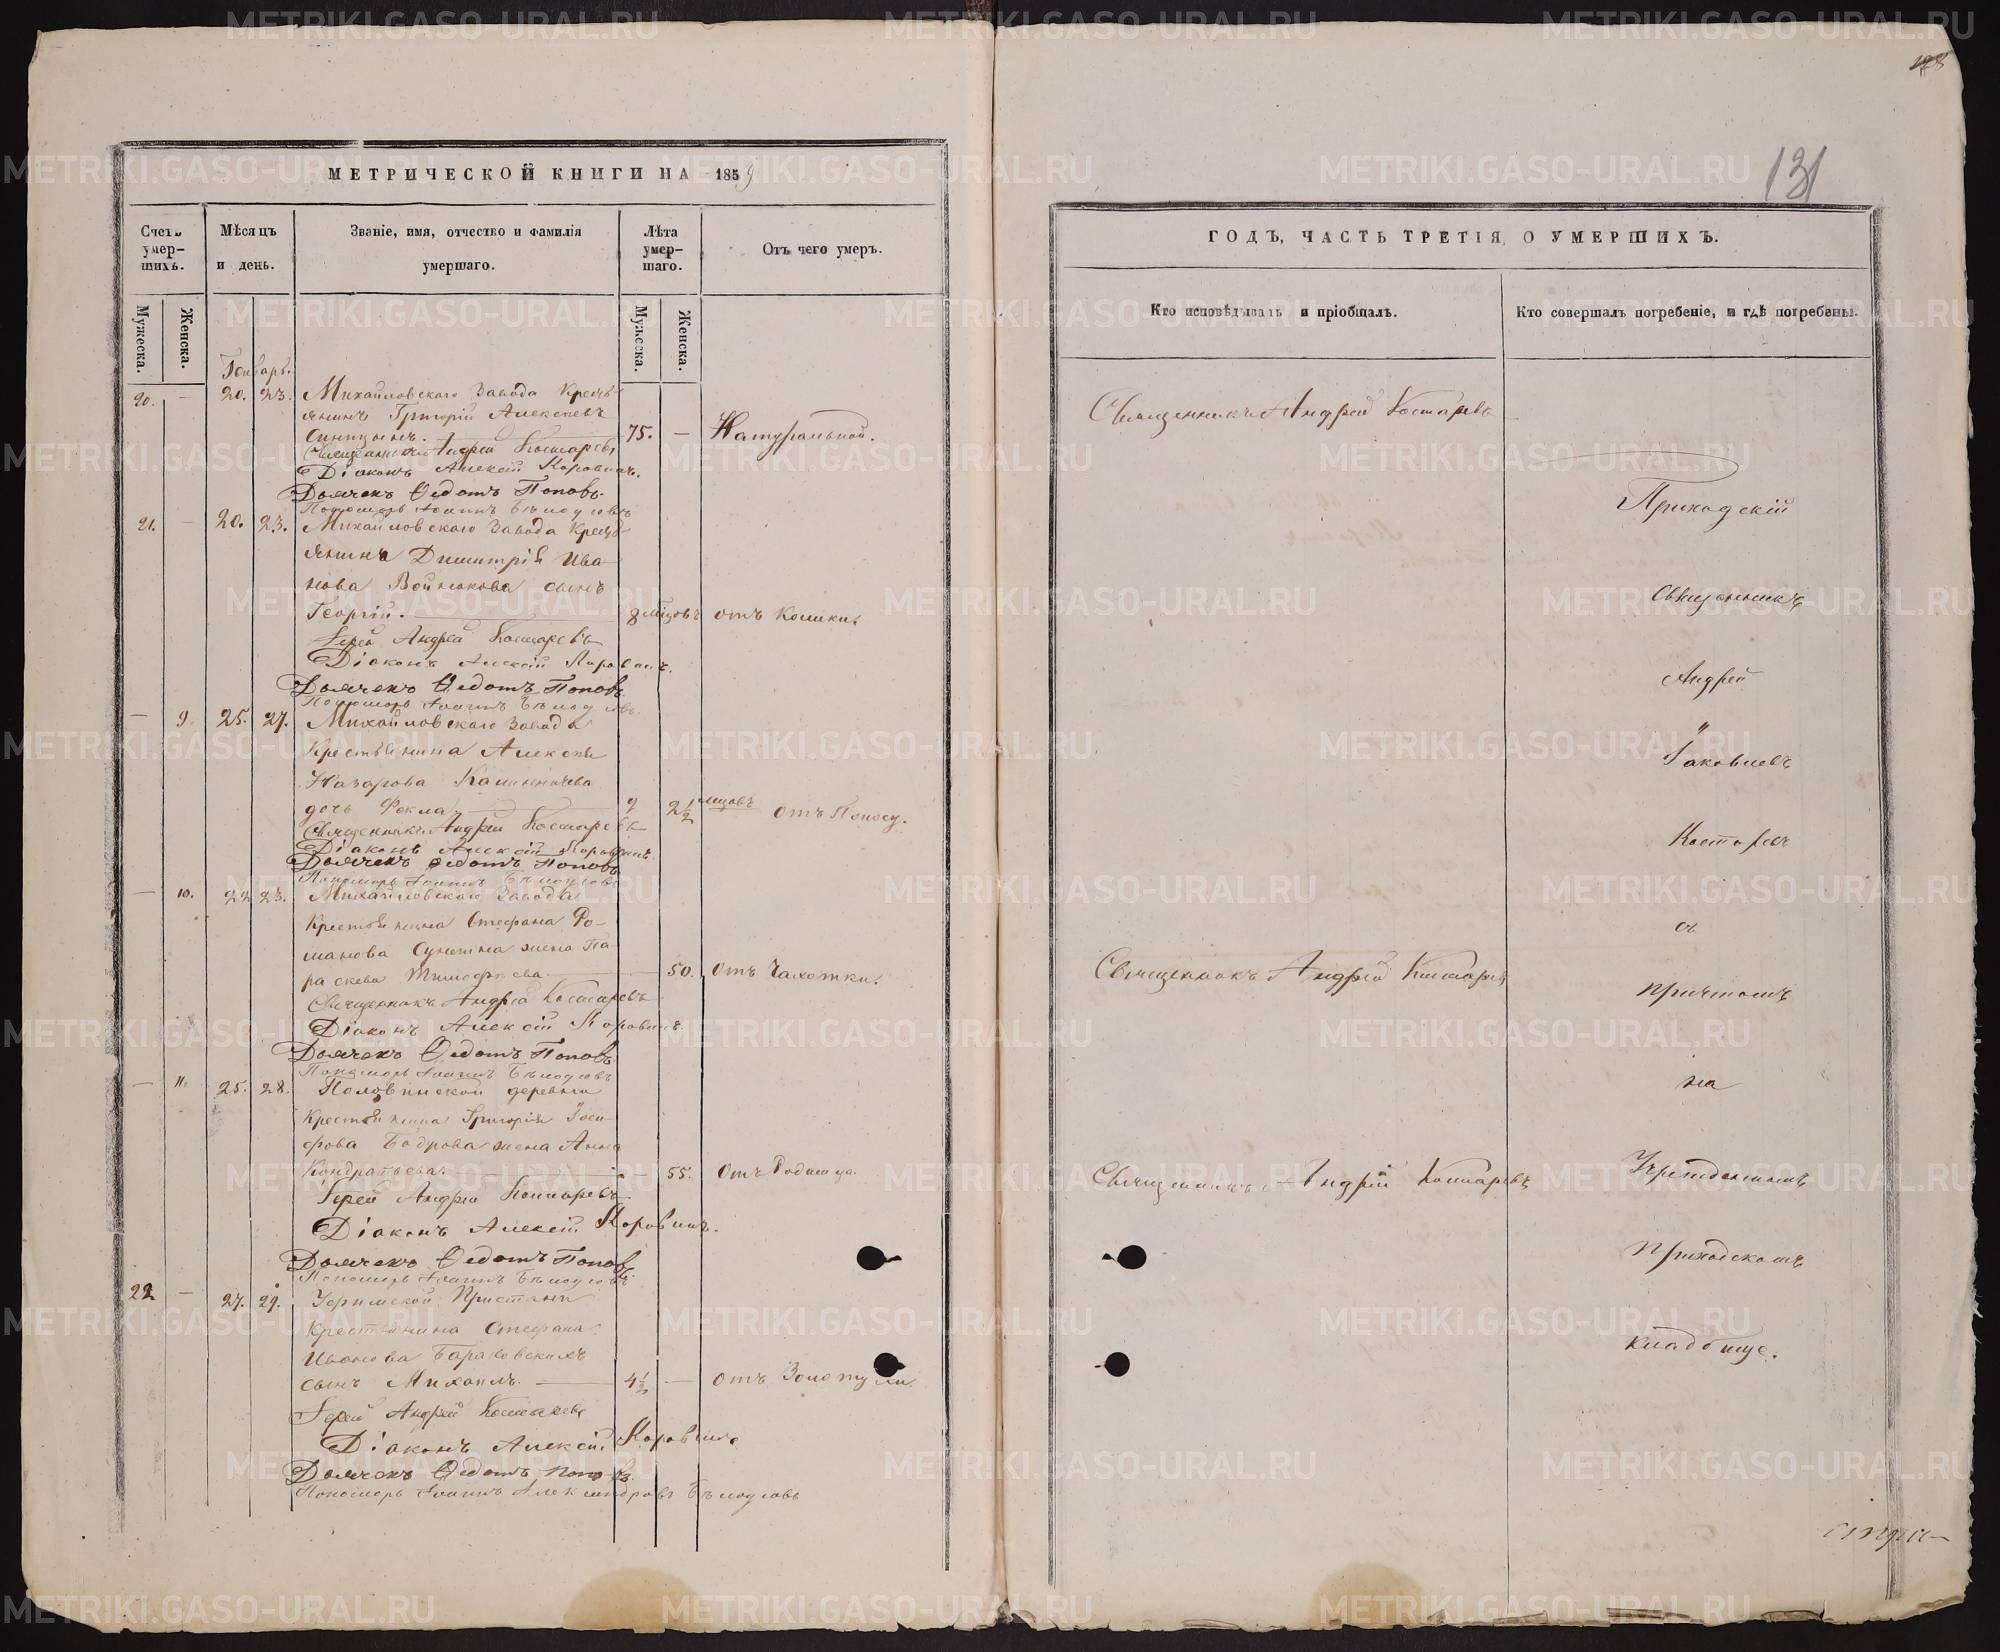 МЕТРИЧЕСКОЙ КНИГИ НА 1859
Счетъ умершихъ.
Мѣсяцъ и день.
Званіе, имя, отчество и фамилія умершаго.
Лѣта умершаго.
Отъ чего умеръ.
Мужеска.
Женска.
Мужеска.
Женска.
Генварь.
20. — 20. 23. Михайловскаго Завода Кресть-
янинъ Григорій Алексѣевъ
Синицынъ. 75. — Натуральной.
Священникъ Андрей Костаревъ
Діаконъ Алексій Коровинъ.
Дьячекъ Ѳедотъ Поповъ.
Пономарь Іоаннъ Бѣлоусовъ
21. — 20. 23. Михайловскаго Завода Кресть-
янина Димитрія Ива-
нова Войнокова сынъ
Георгій. 8 мѣсцовъ отъ Колики.
Іерей Андрей Костаревъ
Діаконъ Алексій Коровинъ.
Дьячекъ Ѳедотъ Поповъ.
Пономарь Іоаннъ Бѣлоусовъ.
— 9. 25. 27. Михайловскаго Завода
Крестьянина Алексѣя
Назарова
дочь Фекла 2½ мѣсцовъ отъ Поносу.
Священникъ Андрей Костаревъ
Діаконъ Алексій Коровинъ
Дьячекъ Ѳедотъ Поповъ
Пономарь Іоаннъ Бѣлоусовъ
— 10. 22 23. Михайловскаго Завода
Крестьянина Стефана Ро-
манова жена Па-
раскева Тимофѣева. — 50. отъ Чахотки.
Священникъ Андрей Костаревъ
Діаконъ Алексій Коровинъ.
Дьячекъ Ѳедотъ Поповъ
Пономарь Іоаннъ Бѣлоусовъ
— 11. 25. 28. Половинской деревни
Крестьянина Григорія Іоси-
фова Бодрова жена Анна
Кондратьева. — 55. отъ
Іерей Андрей Костаревъ
Діаконъ Алексій Коровинъ.
Дьячекъ Ѳедотъ Поповъ
Пономарь Іоаннъ Бѣлоусовъ
22 — 27. 29. Уфимской Пристани
Крестьянина Стефана
Иванова Бараковскихъ
сынъ Михаилъ. 4½ — отъ Золотухи.
Іерей Андрей Костаревъ
Діаконъ Алексій Коровинъ
Дьячекъ Ѳедотъ Поповъ.
Пономарь Іоаннъ Александровъ Бѣлоусовъ
131
ГОДЪ, ЧАСТЬ ТРЕТІЯ, О УМЕРШИХЪ.
Кто исповѣдывалъ и пріобщалъ.
Кто совершалъ погребеніе, и гдѣ погребены.
Священникъ Андрей Костаревъ
Священникъ Андрей Костаревъ
Священникъ Андрей Костаревъ
Приходскій
Священникъ
Андрей
Іаковлевъ
Костаревъ
съ
причтомъ
на
Учрежденномъ
приходскомъ
кладбище.
METRIKI.GASO-URAL.RU